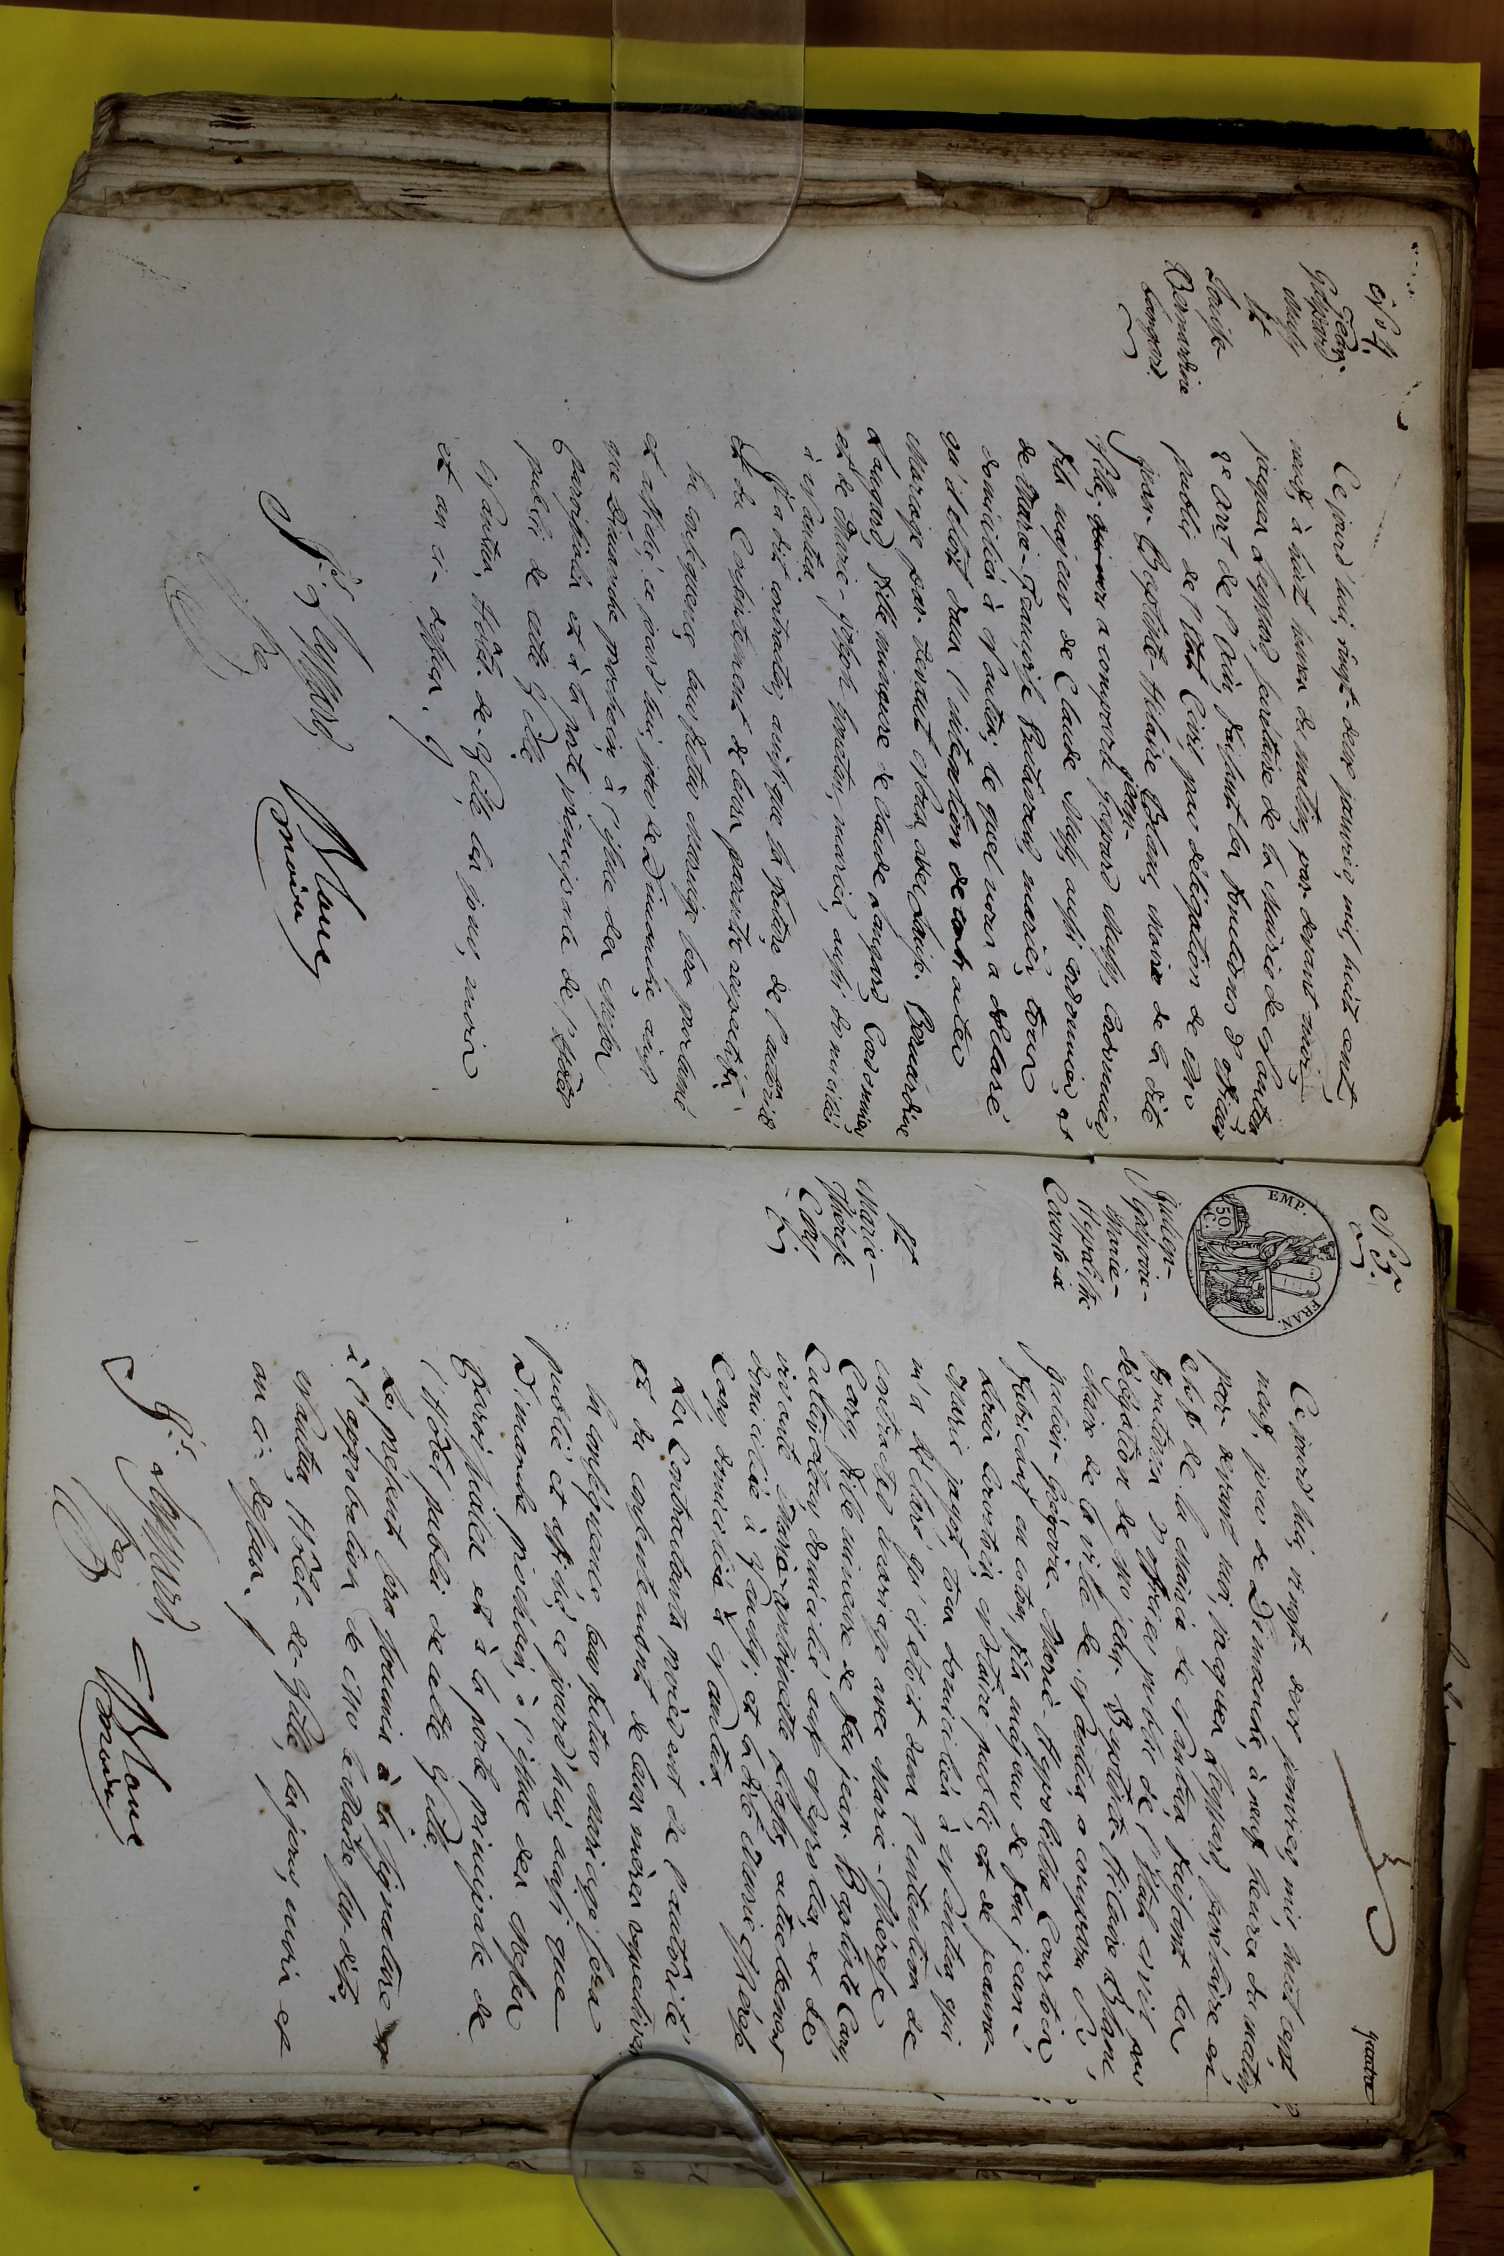 N.º 4.
Jean-
Gaspard
Maffy
Et
Louise
Bernardine
Langard.
Ce jourd'hui, vingt-deux janvier, mil, huit cent,
neuf, à huit heures du matin, par-devant moi,
jacques Leyssard, secrétaire de la Mairie de Nantua
de l'ain, faisant les fonctions d'officier
public de l'état Civil par délégation de Mr
jean-Baptiste-Hilaire Blanc, Maire de la dite
Ville, a comparu jean-gaspard Maffy, Cordonnier,
fils majeur de Claude Maffy, aussi cordonnier, et
de Marie-Françoise mariés, tous
domiciliés à Nantua; le quel nous a déclaré
qu'il étoit dans l'intention de contracter
Mariage par devant Nous, avec Louise-Bernardine
Langard, fille mineure de Claude Langard, Cordonnier,
et de Marie-joseph mariés, aussi domiciliés
à Nantua.
Il a dit contracter, ainsi que sa future, de l'autorité
et du Consentement de leurs parents respectifs.
En conséquence, leur futur Mariage sera proclamé
et affiché, ce jourd'hui, jour de Dimanche, ainsi
que Dimanche prochain, à l'issue des Messes
paroissiales et à la porte principale de l'Hôtel
public de cette Ville.
Nantua, Hôtel-de-Ville, les jour, mois
et an ci-dessus.
Js. Leyssard
Sre
Blanc
maire
quatre
N.º 5.
EMP. FRAN.
50 C.
Julien-
Grégoire-
Marie-
Hypolithe
Courtois
Et
Marie-
Thérèse
Cary
Ce jourd'hui, vingt-deux janvier, mil, huit cent,
neuf, jour de Dimanche, à neuf heures du matin,
par-devant moi, jacques Leyssard, secrétaire en
Chef de la mairie de Nantua, faisant les
fonctions d'officier public de l'état civil par
délégation de Mr jean-Baptiste-Hilaire Blanc
Maire de la ville de Nantua, a comparu Sr
julien-Grégoire-Marie-Hypolithe Courtois,
fabricant en coton, fils majeur de feu jean-
Louis Courtois, Notaire public, et de jeanne-
Marie tous domiciliés à Nantua, qui
m'a déclaré qu'il étoit dans l'intention de
contracter mariage avec Marie-Thérèse
Cary, fille mineure de feu jean-Baptiste Cary,
Cultivateur, domicilié aux et de
vivante Marie-antoinette actuellement
domiciliée à et la dite Marie-Thérèse
Cary, domiciliée à Nantua.
Les Contractants procèdent de l'autorité
et du consentement de leurs mères respectives
En conséquence leur futur mariage sera
publié et affiché, ce jourd'hui, ainsi que
Dimanche prochain, à l'issue des Messes
Paroissiales et à la porte principale de
l'Hôtel public de cette Ville.
Le présent sera soumis à la signature
à l'approbation de Mr le Maire sus-dit.
Nantua, Hôtel-de-Ville, les jour, mois et
an ci-dessus.
Js. Leyssard,
Sre
Blanc
maire